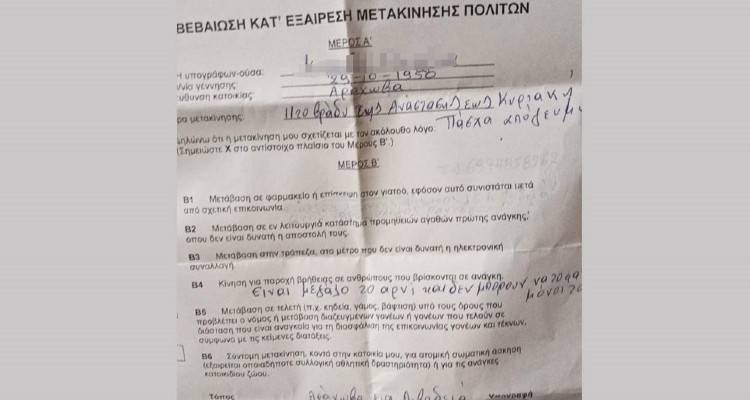 ΒΕΒΑΙΩΣΗ ΚΑΤ' ΕΞΑΙΡΕΣΗ ΜΕΤΑΚΙΝΗΣΗΣ ΠΟΛΙΤΩΝ
ΜΕΡΟΣ Α'
υπογράφων-ουσα:
29-10-1950
γέννησης
Αράχωβα
κατοικίας
Το βράδυ της Αναστάσεως Κυριακή
μετακίνησης:
Πάσχα απόγευμ
ηλώνω ότι η μετακίνηση μου σχετίζεται με τον ακόλουθο λόγο:
(Σημειώστε Χ στο αντίστοιχο πλαίσιο του Μέρους Β'.)
ΜΕΡΟΣ Β'
Β1 Μετάβαση σε φαρμακείο ή επίσκεψη στον γιατρό, εφόσον αυτό συνιστάται μετά
από σχετική επικοινωνία.
Β2 Μετάβαση σε εν λειτουργία κατάστημα προμηθειών αγαθών πρώτης ανάγκης,
όπου δεν είναι δυνατή η αποστολή τους.
Β3 Μετάβαση στην τράπεζα, στο μέτρο που δεν είναι δυνατή η ηλεκτρονική
συναλλαγή.
Β4 Κίνηση για παροχή βοήθειας σε ανθρώπους που βρίσκονται σε ανάγκη.
Είναι μεγάλο το αρνί και δεν μπορούν να το φα
μόνοι το
Β5 Μετάβαση σε τελετή (π.χ. κηδεία, γάμος, βάφτιση) υπό τους όρους που
προβλέπει ο νόμος ή μετάβαση διαζευγμένων γονέων ή γονέων που τελούν σε
διάσταση που είναι αναγκαία για τη διασφάλιση της επικοινωνίας γονέων και τέκνων,
σύμφωνα με τις κείμενες διατάξεις.
Β6 Σύντομη μετακίνηση, κοντά στην κατοικία μου, για ατομική σωματική άσκηση
(εξαιρείται οποιαδήποτε συλλογική αθλητική δραστηριότητα) ή για τις ανάγκες
κατοικιδίου ζώου.
Τόπος Αράχωβα για Λιβαδειά Υπογραφή